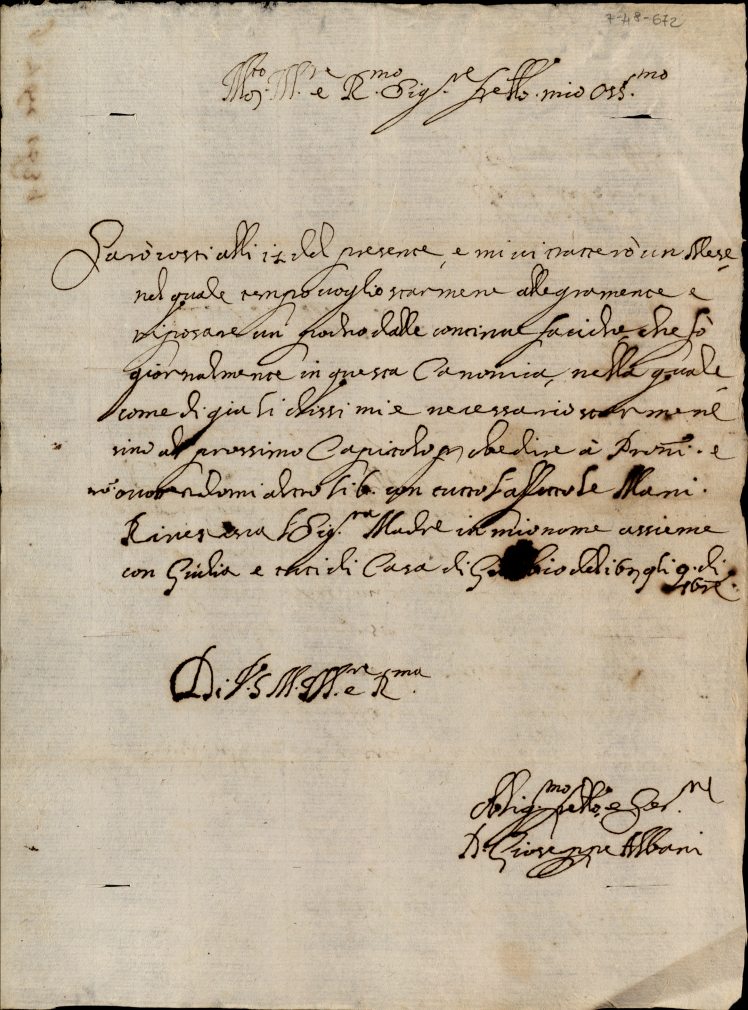 7-48-672
Mto Ill.re e R.mo Sig.re frello mio Oss.mo
Sarò costi alli 12 del presente, e mi vi tratterò un Mese
nel quale tempo voglio starmene allegramente e
riposare un podno dalle continue fatiche, che fò
giornalmente in questa Canonica, nella quale,
come di già li dissi mi è necessario starmene
sino al prossimo Capitolo p obedire à Proni. e
nō ovvorendomi altro li b. con tutto l'affetto le Mani.
Riverisca la Sig.ra Madre in mio nome assieme
con Giulia e tutti di Casa di Gubbio delib gli 9. di
7bre.
Di V.S. M. Ill.re e R.ma
Oblig.mo frello, e Ser.re
D. Gioseppe Albani